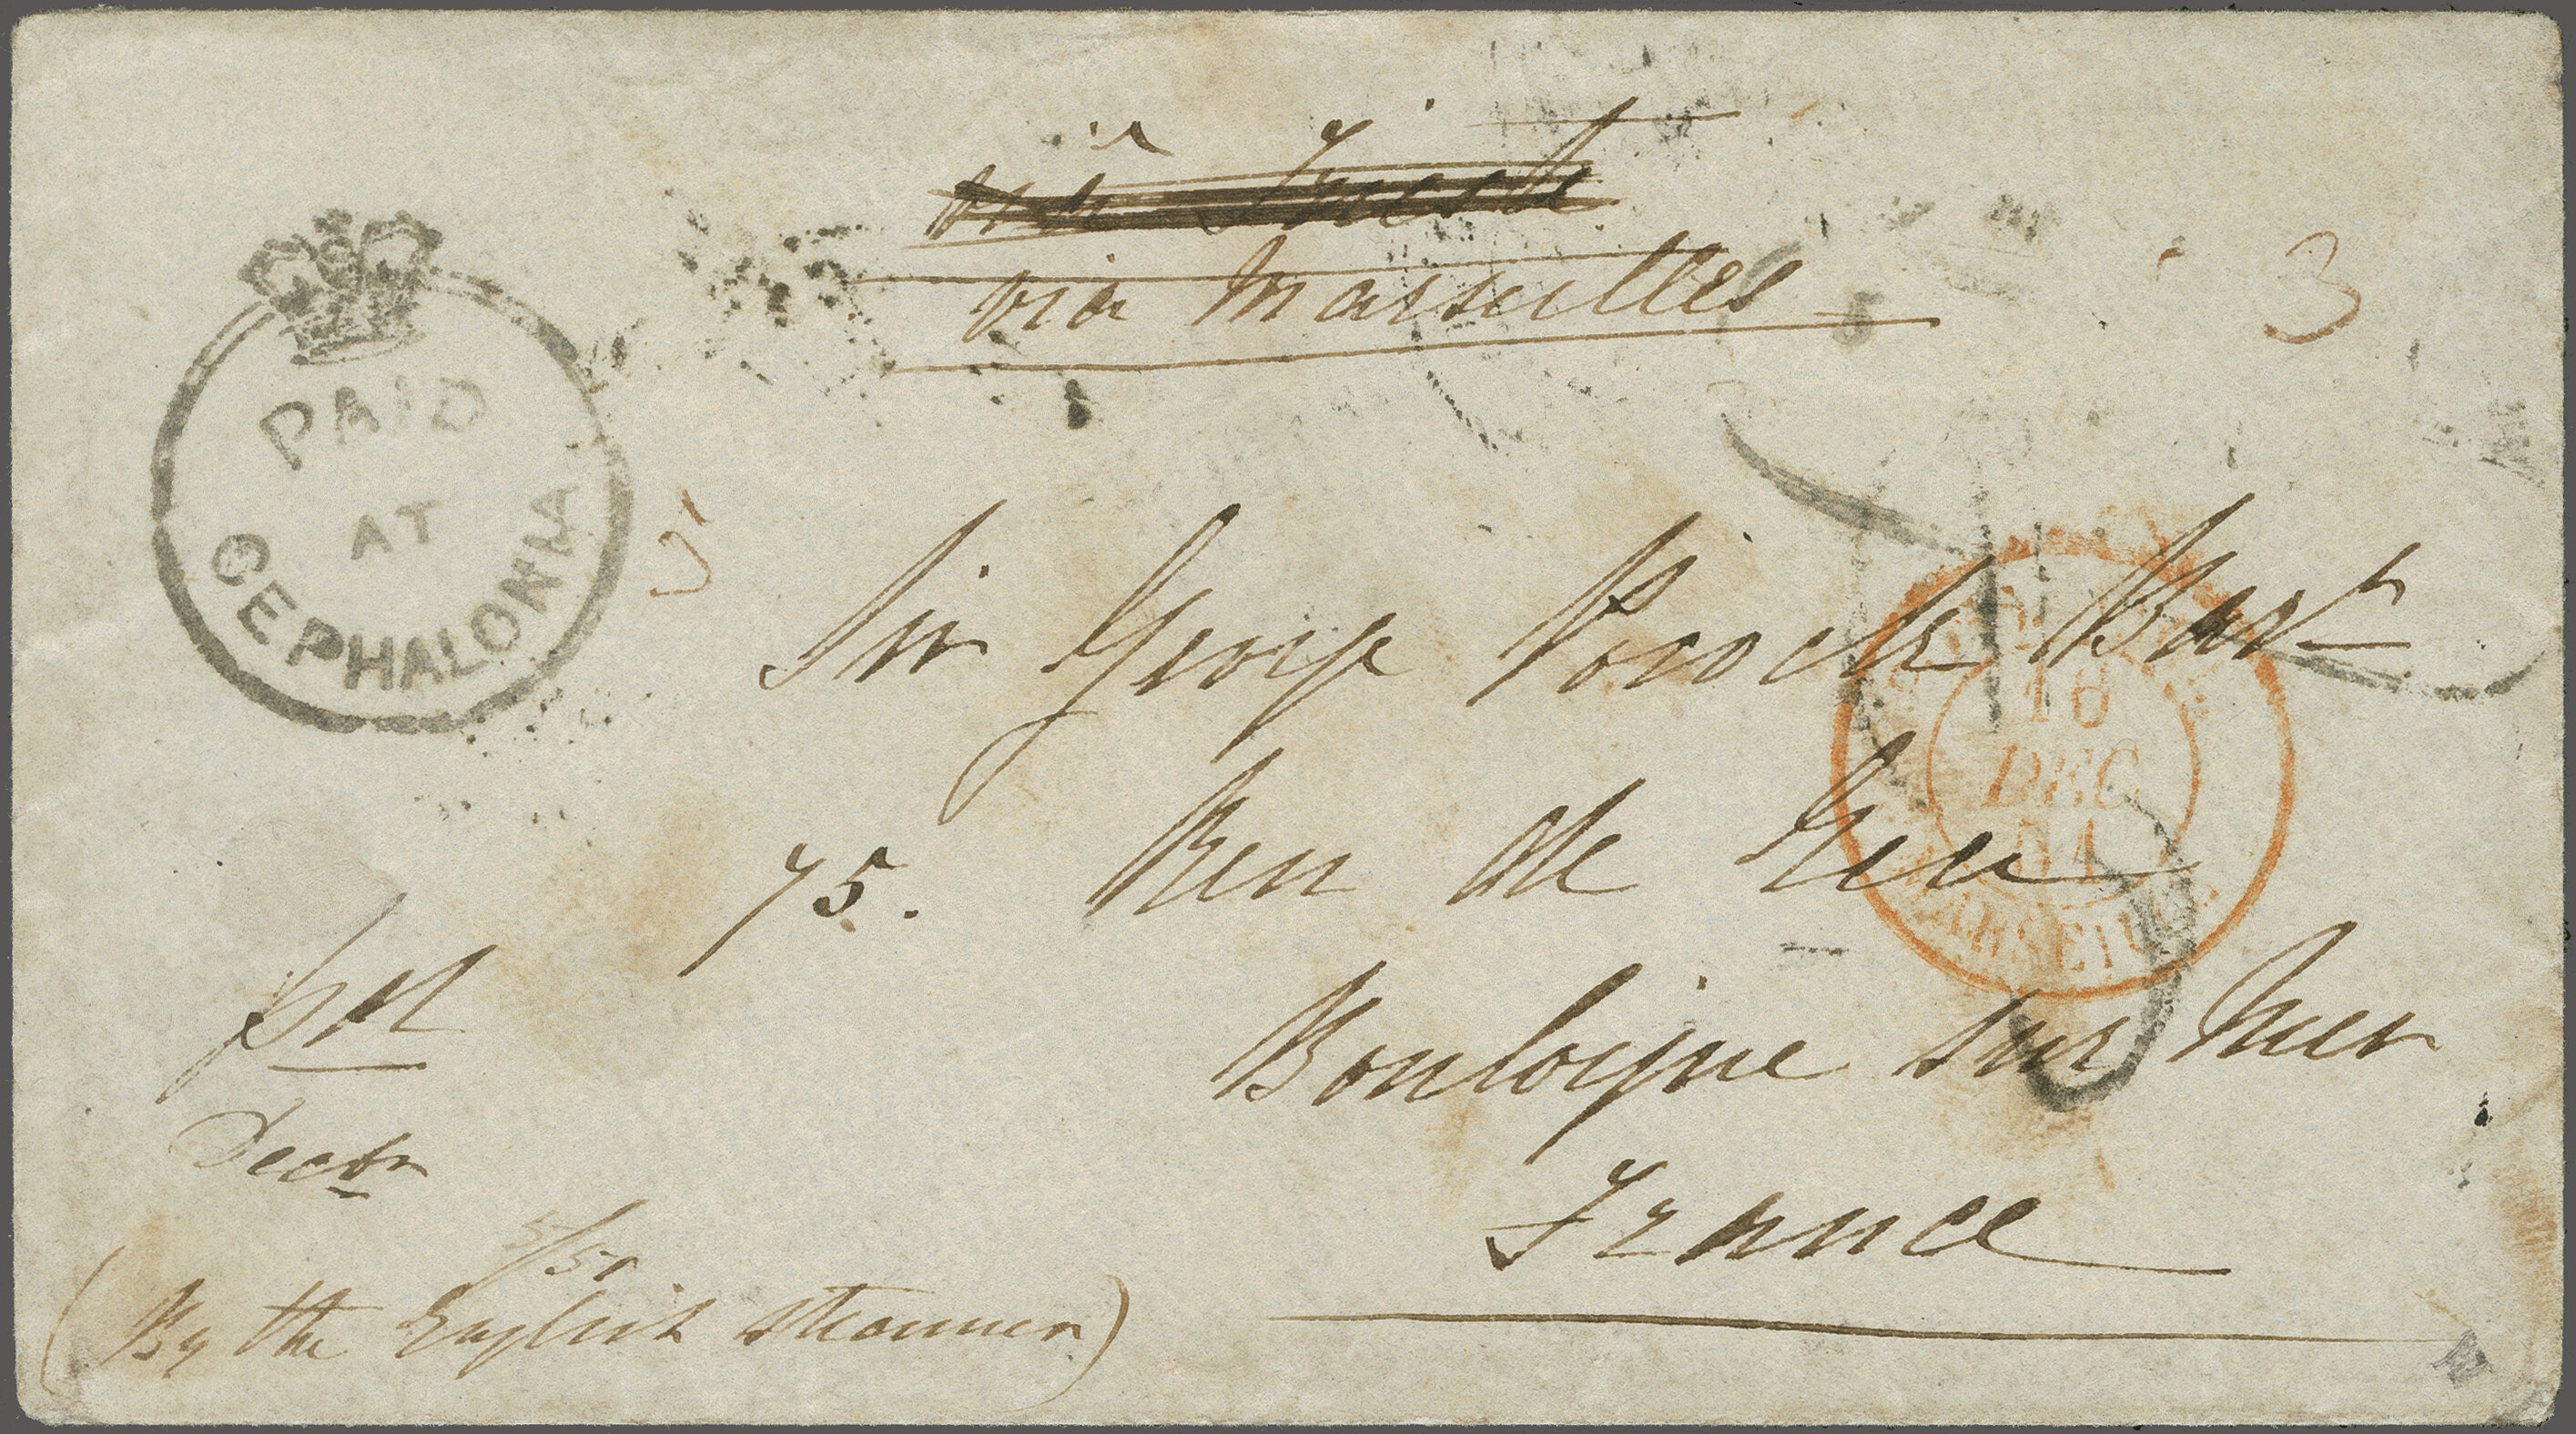 via Trieste
via Marseilles
3
PAID
AT
CEPHALONIA
Sir George Pocock Bart
75. Rue de
Boulogne sur Mer
France
16
DEC
51
MARSEILLE
pd
Decbr
5/51
(By the English steamer)